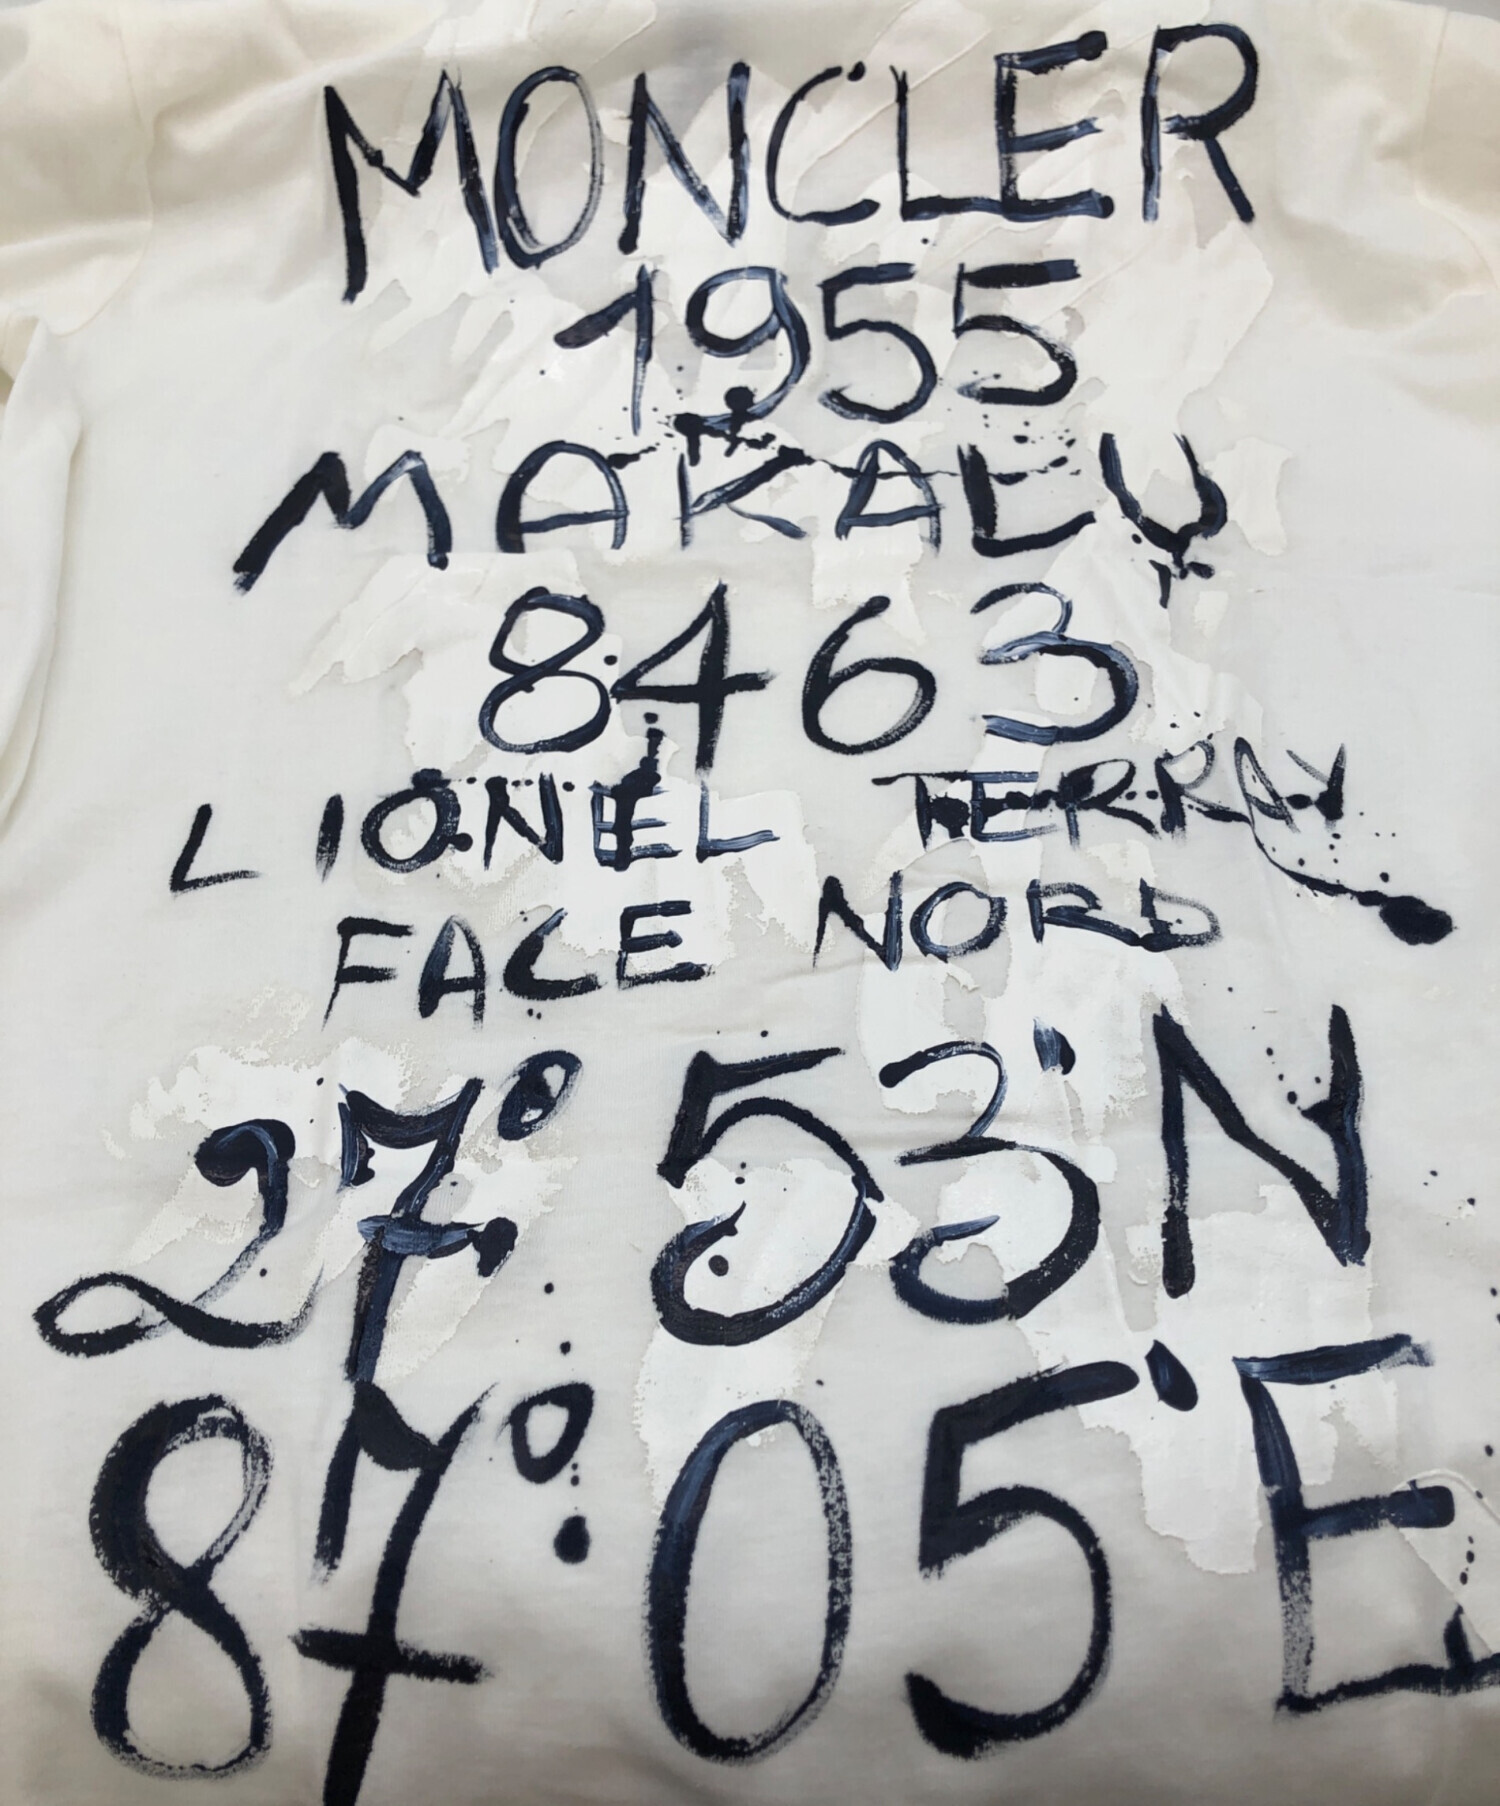 MONCLER
1955
MAKALU
8463
LIONEL TERRAY
FACE NORD
27° 53'N
87° 05'E